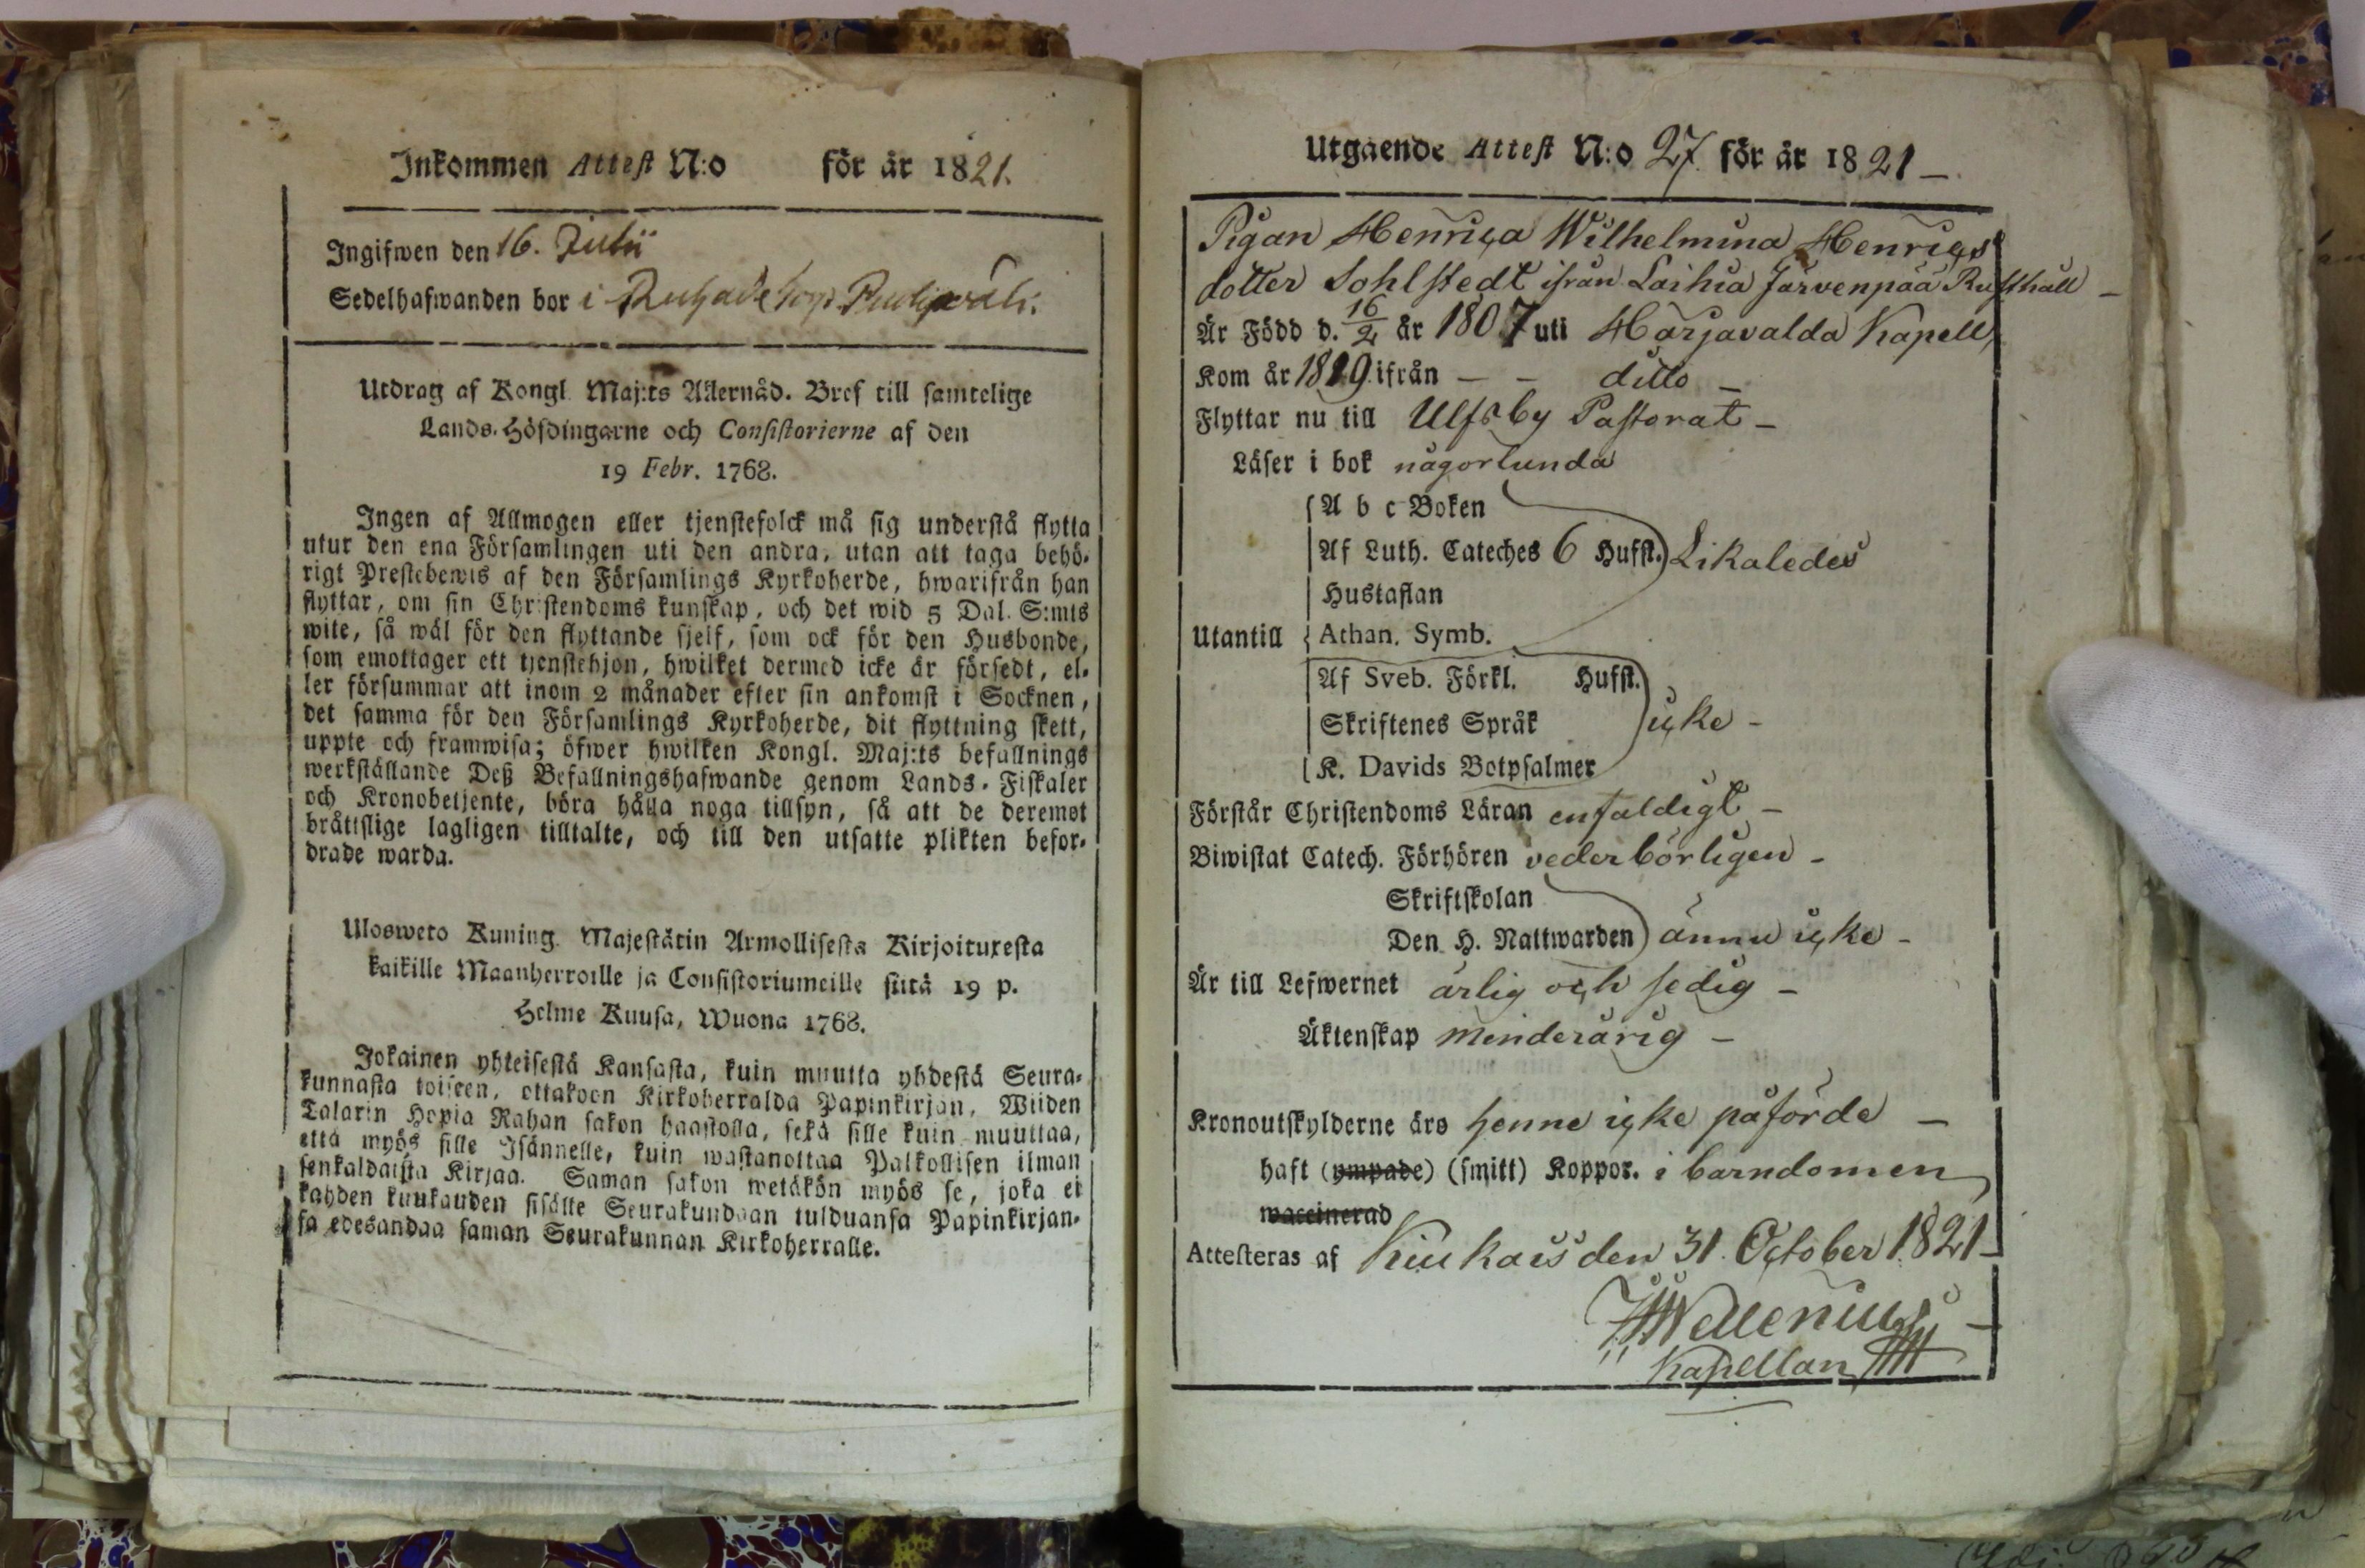 Inkommen Attest N:o för år 1821.
Ingifwen den 16. Julii
Sedelhafwanden bor i
Utdrag af Kongl. Maj:ts Allernåd. Bref till samtelige
Lands-Höfdingarne och Consistorierne af den
19 Febr. 1768.
Ingen af Allmogen eller tjenstefolck må sig understå flytta
utur den ena Församlingen uti den andra, utan att taga behö-
rigt Prestebewis af den Församlings Kyrkoherde, hwarifrån han
flyttar, om sin Christendoms kunskap, och det wid 5 Dal. S:mts
wite, så wäl för den flyttande sjelf, som ock för den Husbonde,
som emottager ett tjenstehjon, hwilket dermed icke är försedt, el-
ler försummar att inom 2 månader efter sin ankomst i Socknen,
det samma för den Församlings Kyrkoherde, dit flyttning skett,
uppte och framwisa; öfwer hwilken Kongl. Maj:ts befallnings
werkställande Deß Befallningshafwande genom Lands-Fiskaler
och Kronobetjente, böra hålla noga tillsyn, så att de deremot
bråttslige lagligen tilltalte, och till den utsatte plikten befor-
drade warda.
Ulosweto Kuning. Majestätin Armollisesta Kirjoituxesta
kaikille Maanherroille ja Consistoriumeille siitä 19 p.
Helme Kuusa, Wuona 1768.
Jokainen yhteisestä Kansasta, kuin muutta yhdestä Seura-
kunnasta toiseen, ottakoon Kirkoherralda Papinkirjan, Wiiden
Talarin Hopia Rahan sakon haastolla, sekä sille kuin muuttaa,
että myös sille Isännelle, kuin wastanottaa Palkollisen ilman
senkaldaista Kirjaa. Saman sakon wetäkön myös se, joka ei
kahden kuukauden sisälle Seurakundaan tulduansa Papinkirjan-
sa edesandaa saman Seurakunnan Kirkoherralle.
Utgående Attest N:o 27. för år 1821 –
Pigan Henrica Wilhelmina Henrics
dotter Sohlstedt ifrån Laihia Järvenpää Rusthåll –
Är Född d. 16/2 år 1807 uti Harjavalda Kapell
Kom år 1819 ifrån – – ditto –
Flyttar nu till Ulfsby Pastorat –
Läser i bok någorlunda
A b c Boken
Af Luth. Cateches 6 Hufst. Likaledes
Hustaflan
Utantill Athan. Symb.
Af Sveb. Förkl. Hufst.
Skriftenes Språk icke –
K. Davids Botpsalmer
Förstår Christendoms Läran enfaldigt –
Biwistat Catech. Förhören vederbörligen –
Skriftskolan
Den H. Nattwarden ännu icke –
Är till Lefwernet ärlig och sedig –
Äktenskap minderårig –
Kronoutskylderne äro henne icke påförde –
haft (ympade) (smitt) Koppor. i barndomen
waccinerad
Attesteras af Kiukais den 31. October 1821 –
Wellenius –
Kapellan